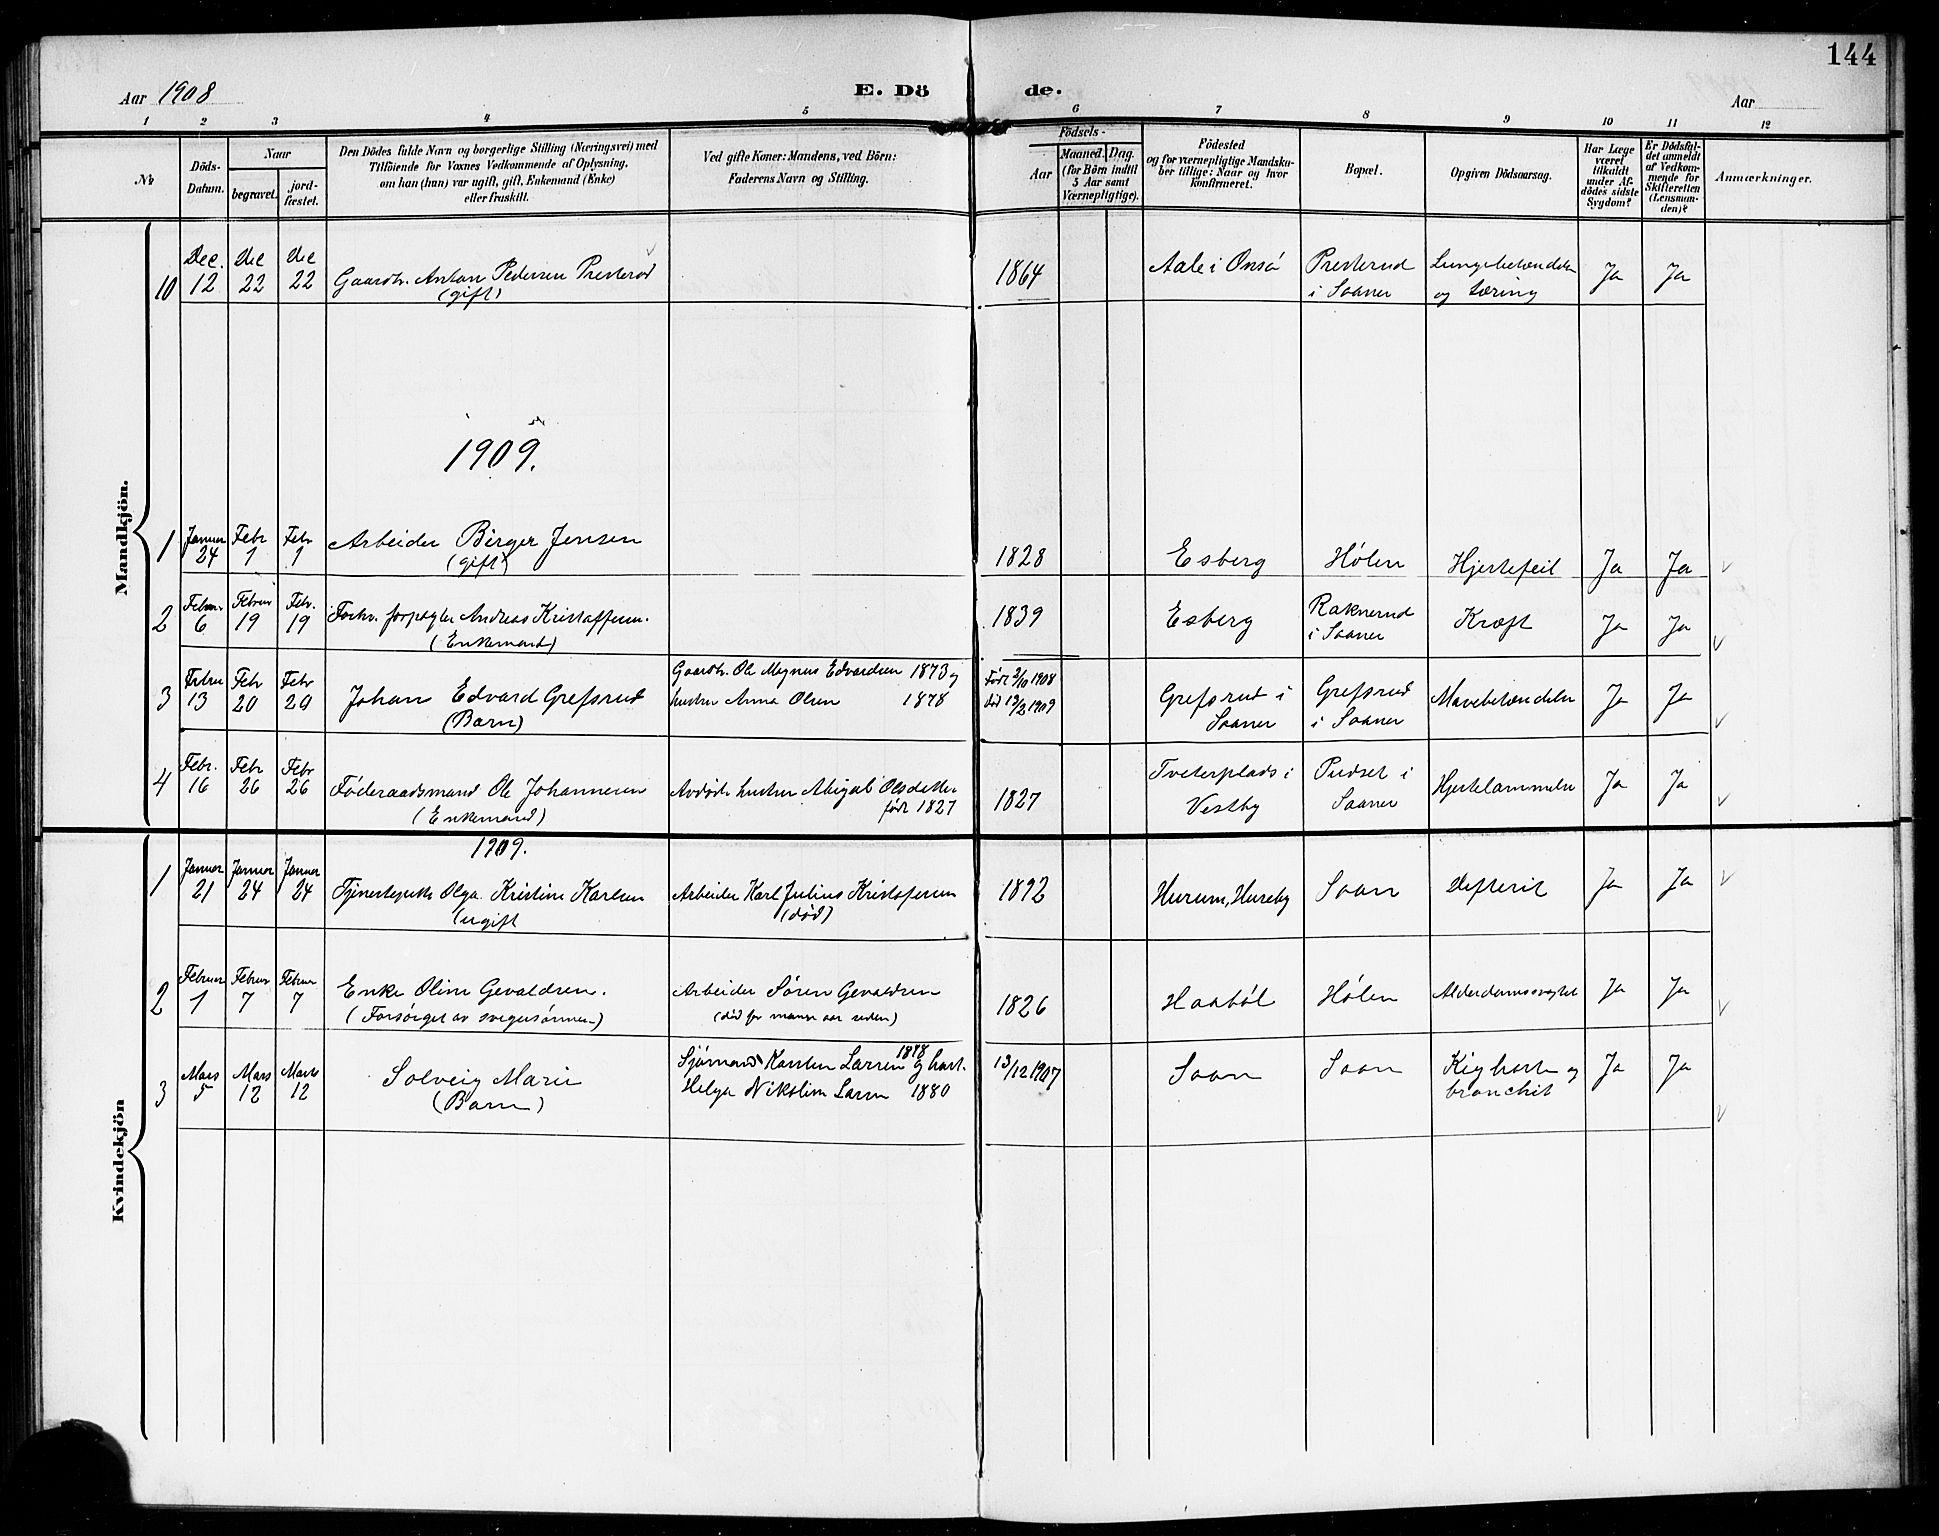 144
Aar 1908
E. Dö
de.
Aar
1 2 3 4 5 6 7 8 9 10 11 12
No
Döds-
Datum.
Naar
begravet.
jord-
fæstet.
Den Dödes fulde Navn og borgerlige Stilling (Næringsvei) med
Tilföiende for Voxnes Vedkommende af Oplysning,
om han (hun) var ugift, gift, Enkemand (Enke)
eller fraskilt.
Ved gifte Koner: Mandens, ved Börn:
Faderens Navn og Stilling.
Födsels-
Aar
Maaned. Dag.
(for Börn indtil
5 Aar samt
Værnepligtige).
Födested
og for værnepligtige Mandsku-
ber tillige: Naar og hvor
konfirmeret.
Bopæl.
Opgiven Dödsaarsag.
Har Læge
været
tilkaldt
under Af-
dödes sidste
Sygdom?
Er Dödsfal-
det anmeldt
af Vedkom-
mende for
Skifteretten
(Lensman-
den)?
Anmærkninger.
Mandkjön.
10 Dec. 12 Dec 22 Dec 22 Gaardbr. Anton Pedersen Presterød
(gift)
1864 Aale i Onsø Presterud
i Saaner Lungebetændelse
og tæring Ja Ja
1909.
1 Januar 24 Febr 1 Febr 1 Arbeider Birger Jensen
(gift)
1828 Esberg Hølen Hjertefeil Ja Ja
2 Februar 6 Februar 19 Febr. 19 Forhv. forpagter Andreas Kristoffersen.
(Enkemand)
1839 Esberg Raknerud
i Saaner Kræft Ja Ja
3 Febru 13 Febr 20 Febr 20 Johan Edvard Grefsrud
(Barn)
Gaardbr. Ole Magnus Edvardsen 1873 og
hustru Anna Olsen 1878
Født 2/10 1908
død 13/2 1909
Grefsrud i
Saaner Grefsrud
i Saaner Mavebetændelse Ja Ja
4 Febr. 16 Febr 26 Febr 26 Føderaadsmand Ole Johannesen
(Enkemand)
Avdøde hustru Abigael Olsdatter
født 1827
1827 Tveterplads i
Vestby Pudset i
Saaner Hjertelammelse Ja Ja
Kvindekjön
1909.
1 Januar 21 Januar 24 Januar 24 Tjenestepike Olga Kristine Karlsen
(ugift
Arbeider Karl Julius Kristofersen
(død)
1892 Hurum, Hureby Saan Difterit Ja Ja
2 Februar 1 Februar 7 Februar 7 Enke Oline Gevaldsen.
(Forsørget av svigersønnen)
Arbeider Søren Gevaldsen
(død for mange aar siden)
1826 Haabøl Hølen Alderdomssvaghet Ja Ja
3 Mars 5 Mars 12 Mars 12 Solveig Marie
(Barn)
Sjømand Karsten Larsen 1878 og hust.
Helga Nikoline Larsen 1880
13/12 1907 Saan Saan Kighoste og
bronchit Ja Ja